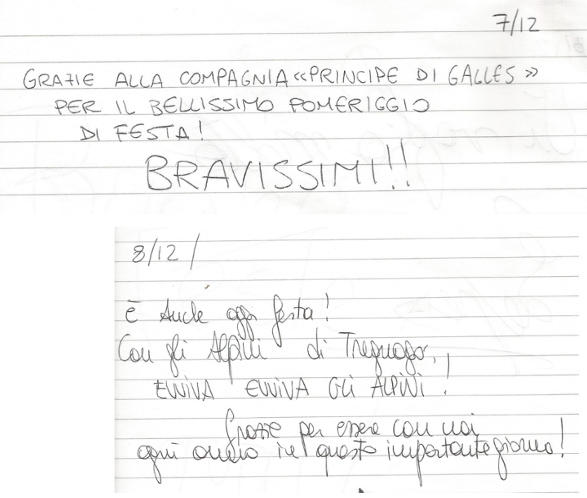 7/12
GRAZIE ALLA COMPAGNIA «PRINCIPE DI GALLES»
PER IL BELLISSIMO POMERIGGIO
DI FESTA!
BRAVISSIMI!!
8/12/
È Anche oggi festa!
Con gli Alpini di Tregnago,
EVVIVA EVVIVA GLI ALPINI!
Grazie per essere con noi
ogni anno in questo importante giorno!